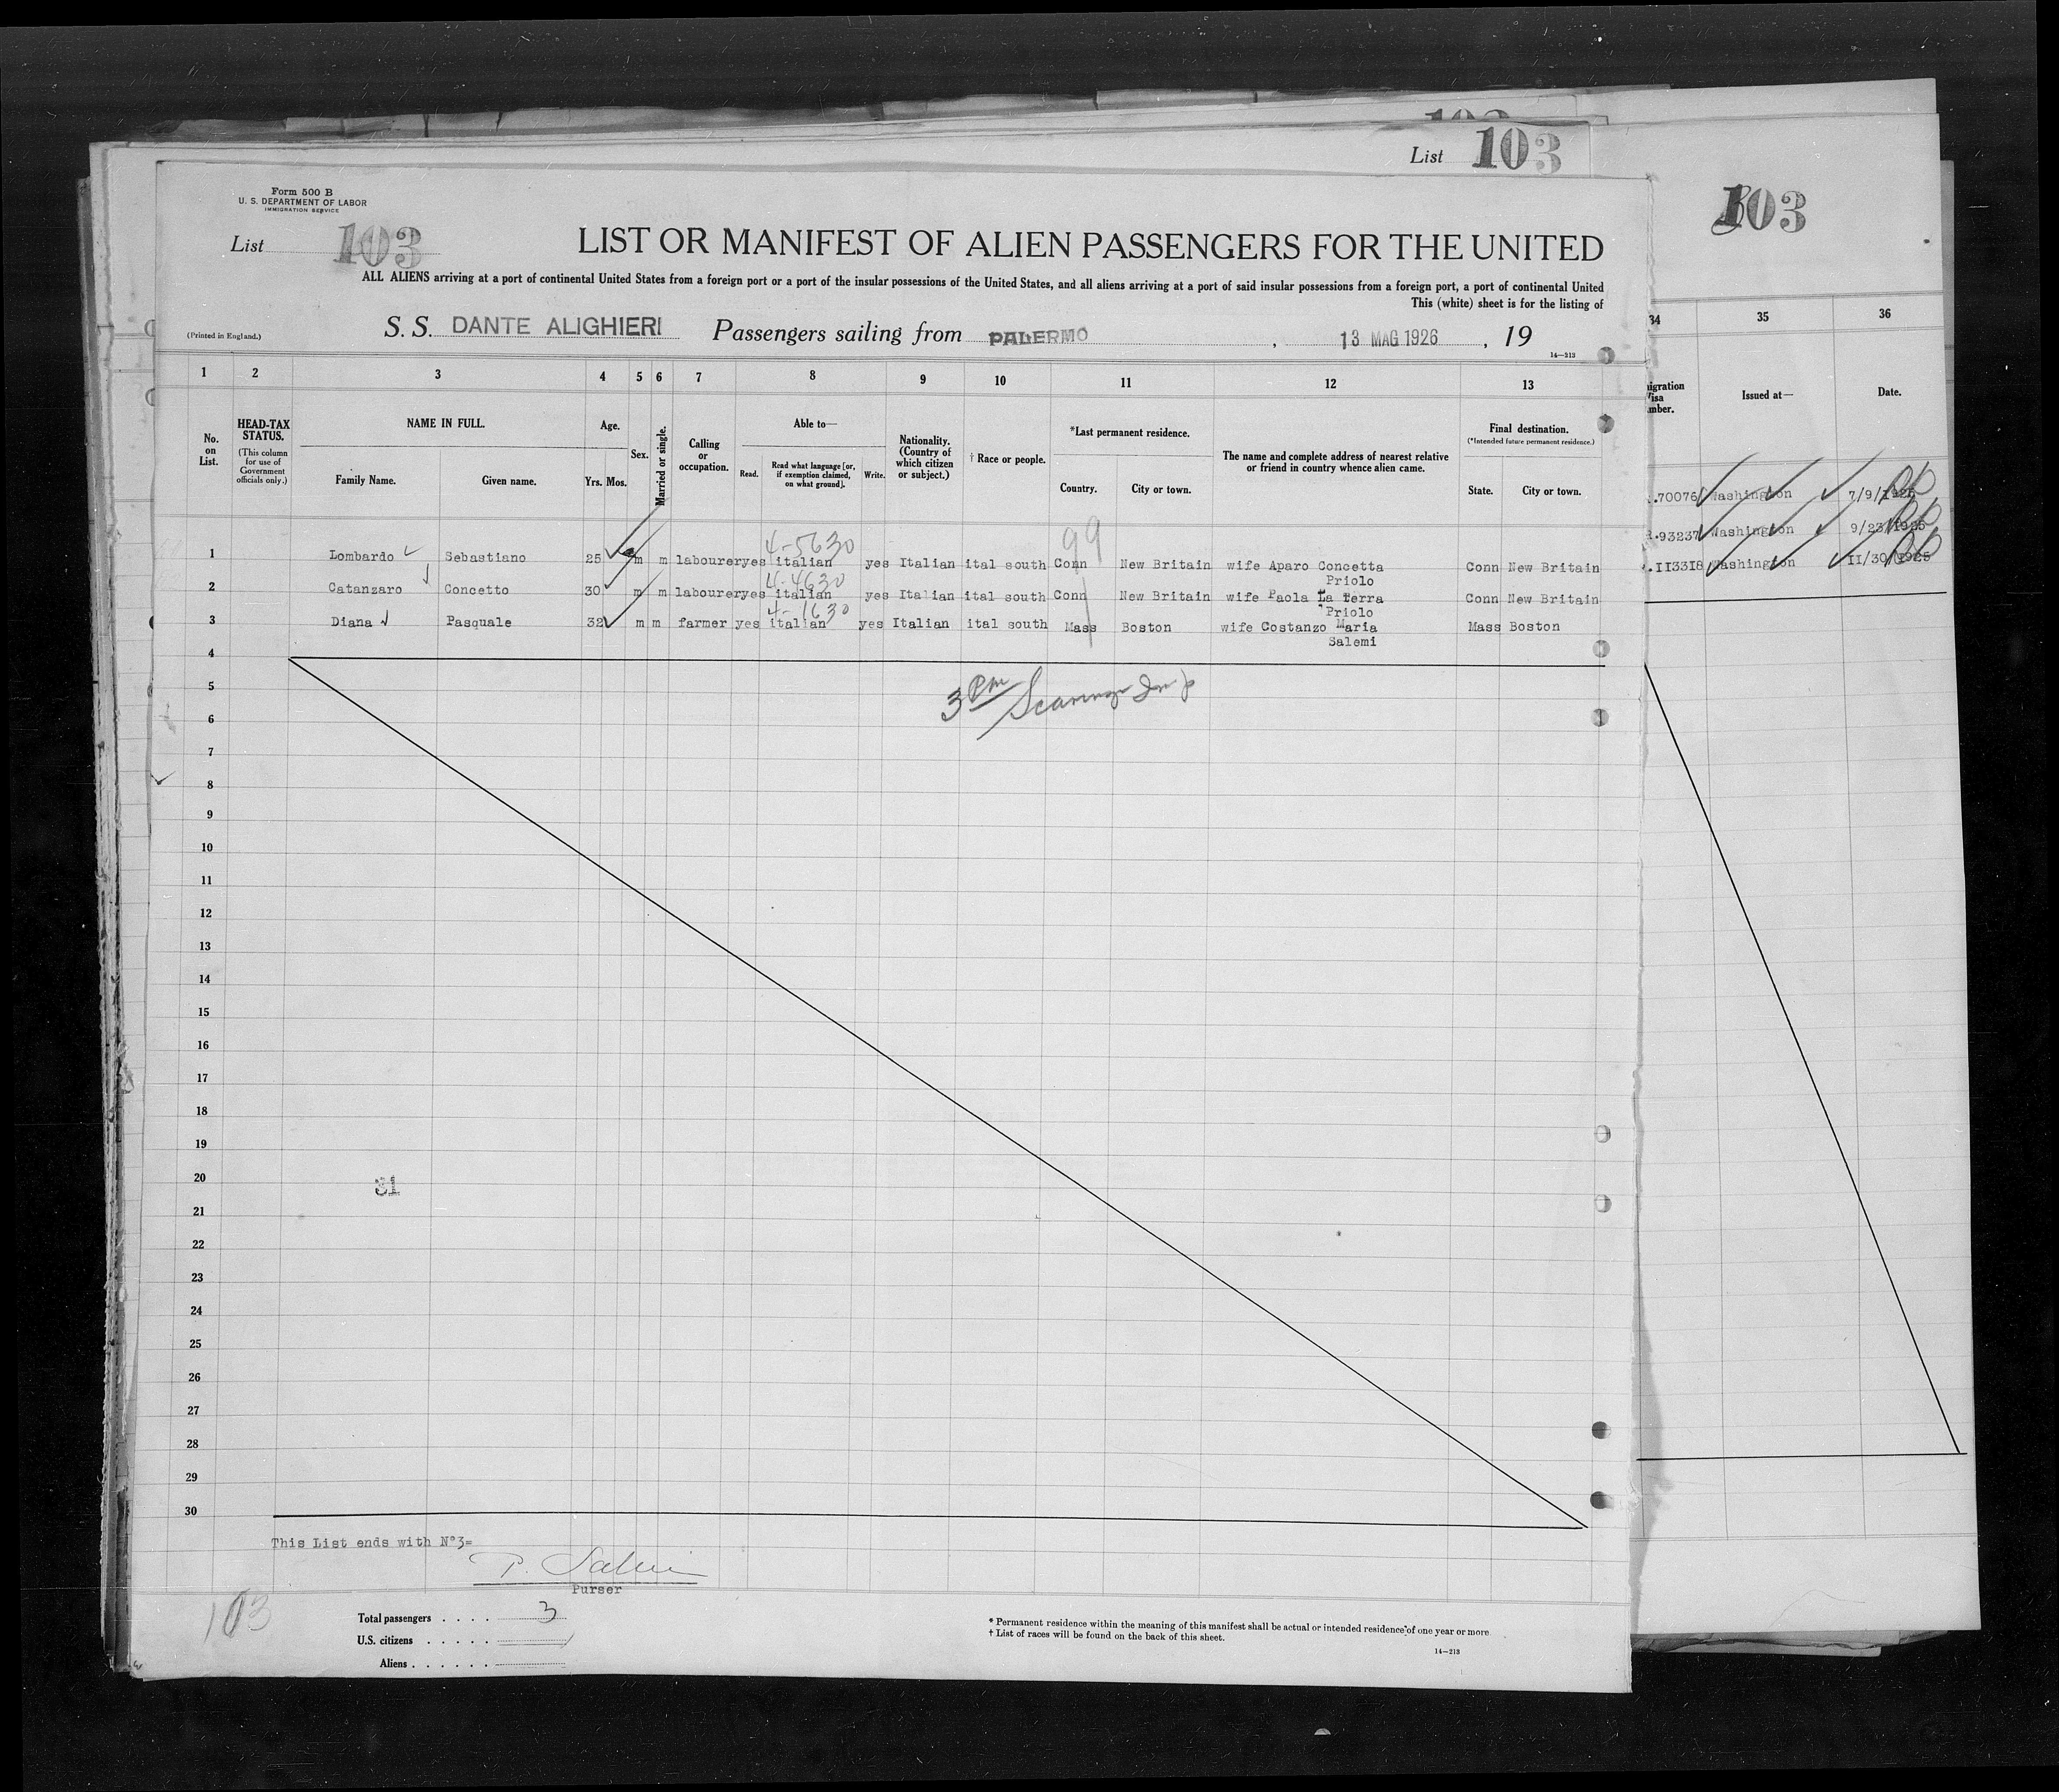 List 103
103
Form 500 B
U. S. DEPARTMENT OF LABOR
IMMIGRATION SERVICE
List 103
LIST OR MANIFEST OF ALIEN PASSENGERS FOR THE UNITED
ALL ALIENS arriving at a port of continental United States from a foreign port or a port of the insular possessions of the United States, and all aliens arriving at a port of said insular possessions from a foreign port, a port of continental United
This (white) sheet is for the listing of
(Printed in England.)
S. S. DANTE ALIGHIERI Passengers sailing from PALERMO , 13 MAG 1926 , 19
14—213
1 2 3 4 5 6 7 8 9 10 11 12 13
34 35 36
No. on List.
HEAD-TAX STATUS.
(This column for use of Government officials only.)
NAME IN FULL.
Family Name. Given name.
Age.
Yrs. Mos.
Sex.
Married or single.
Calling or occupation.
Able to—
Read. Read what language [or, if exemption claimed, on what ground]. Write.
Nationality. (Country of which citizen or subject.)
† Race or people.
*Last permanent residence.
Country. City or town.
The name and complete address of nearest relative or friend in country whence alien came.
Final destination.
(*Intended future permanent residence.)
State. City or town.
Issued at— Date.
4-5630 99
1 Lombardo Sebastiano 25 m m labourer yes italian yes Italian ital south Conn New Britain wife Aparo Concetta Conn New Britain
Priolo
4-4630
2 Catanzaro Concetto 30 m m labourer yes italian yes Italian ital south Conn New Britain wife Paola La Terra Conn New Britain
Priolo
4-1630
3 Diana Pasquale 32 m m farmer yes italian yes Italian ital south Mass Boston wife Costanzo Maria Mass Boston
Salemi
.70076 Washington 7/9/1925
.93237 Washington 9/23/1925
.113318 Washington 11/30/1925
4
3 Pm
5
6
7
8
9
10
11
12
13
14
15
16
17
18
19
20
31
21
22
23
24
25
26
27
28
29
30
This List ends with N°3=
Purser
103
Total passengers . . . . 3
U.S. citizens . . . . .
Aliens . . . . . .
* Permanent residence within the meaning of this manifest shall be actual or intended residence of one year or more
† List of races will be found on the back of this sheet.
14—213